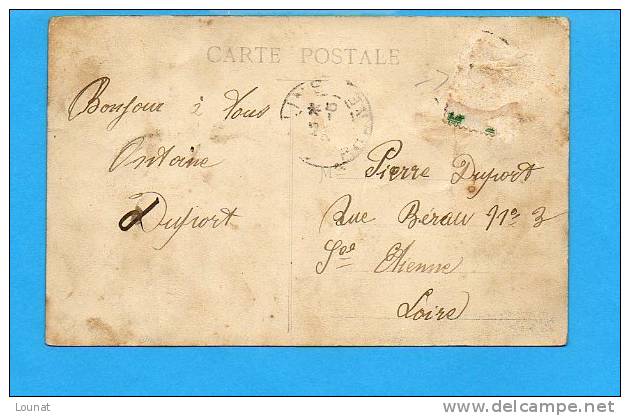 CARTE POSTALE
Bonjour à Vous
Antoine
Duport
M
Pierre Duport
Rue Bérau N° 3
Ste Etienne
Loire
Lounat
www.delcampe.net